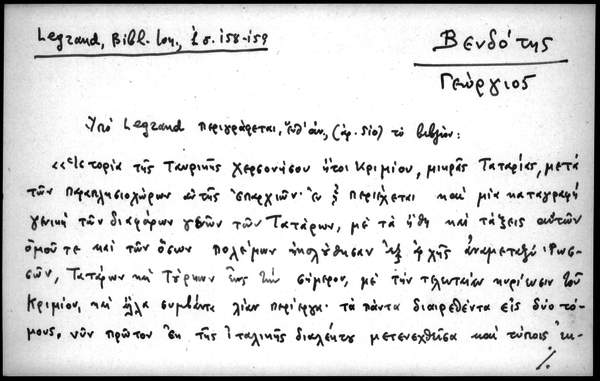 Legrand, Bibl. Ion., σ. 158-159
Βενδότης
Γεώργιος
Ὑπὸ Legrand περιγράφεται, (ἀρ. 510) τὸ βιβλίον:
«Ἱστορία τῆς Ταυρικῆς Χερσονήσου ἤτοι Κριμίου, μικρᾶς Ταταρίας, μετὰ
τῶν παραπλησιοχώρων αὐτῆς ἐπαρχιῶν· ἐν ᾗ περιέχεται καὶ μία καταγραφὴ
γενικὴ τῶν διαφόρων γενῶν τῶν Τατάρων, μὲ τὰ ἤθη καὶ τάξεις αὐτῶν
ὁμοῦ τε καὶ τῶν ὅσων πολέμων ἠκολούθησαν ἐξ ἀρχῆς ἀναμεταξὺ Ῥωσ-
σῶν, Τατάρων καὶ Τούρκων ἕως τὴν σήμερον, μὲ τὴν τελευταίαν κυρίευσιν τοῦ
Κριμίου, καὶ ἄλλα συμβάντα λίαν περίεργα· τὰ πάντα διαιρεθέντα εἰς δύο τό-
μους, νῦν πρῶτον ἐκ τῆς ἰταλικῆς διαλέκτου μετενεχθεῖσα καὶ τύποις ἐκ-
./.